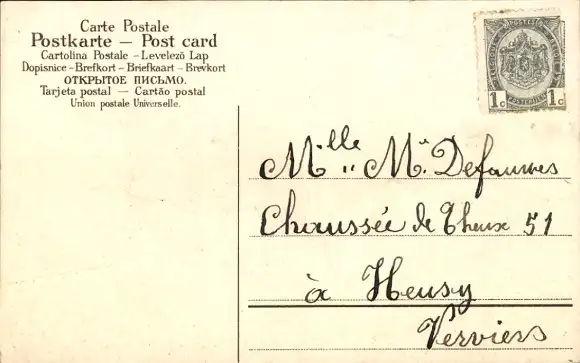 Carte Postale
Postkarte — Post card
Cartolina Postale – Levelező Lap
Dopisnice – Brefkort – Briefkaart – Brevkort
ОТКРЫТОЕ ПИСЬМО.
Tarjeta postal — Cartão postal
Union postale Universelle.
1c 1c
Mlle „ M. Defauwes
Chaussée de Theux 51
à Heusy
Verviers